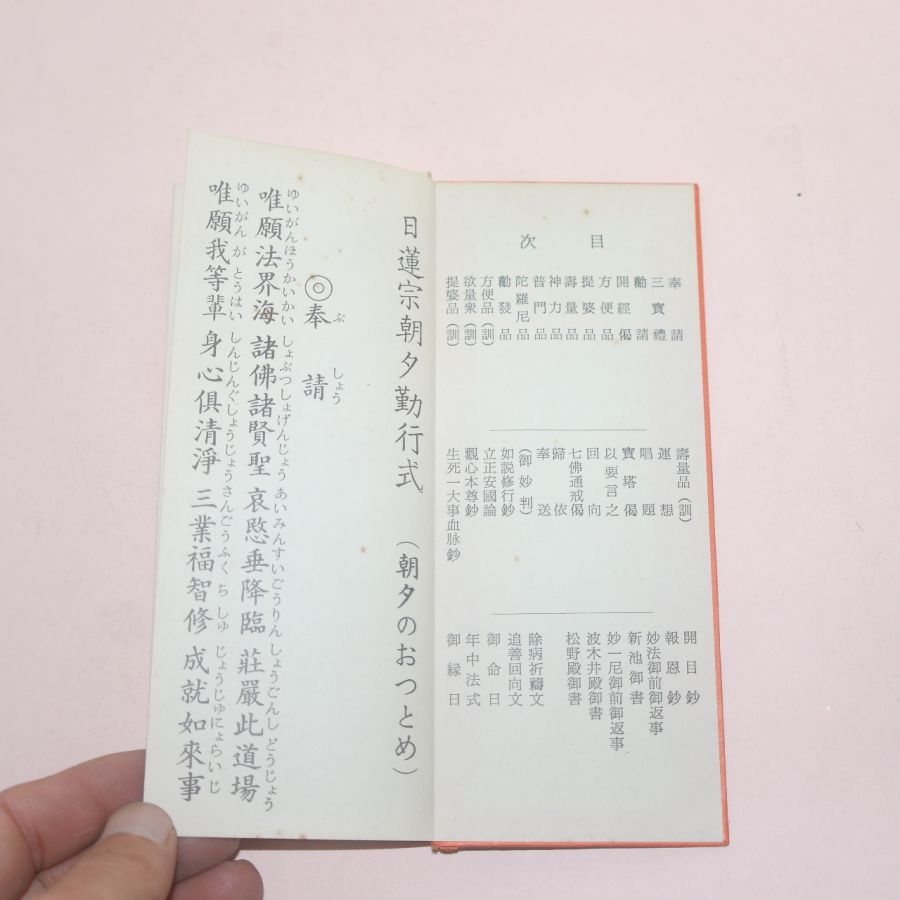 目次
奉請
三寶禮
勸請
開經偈
方便品
提婆品
壽量品
神力品
普門品
陀羅尼品
勸發品
方便品(訓)
欲量衆(訓)
提婆品(訓)
壽量品(訓)
運想
唱題
寶塔偈
以要言之
回向
七佛通戒偈
歸依
奉送
(御妙判)
如説修行鈔
立正安國論
觀心本尊鈔
生死一大事血脉鈔
開目鈔
報恩鈔
妙法御前御返事
新池御書
妙一尼御前御返事
波木井殿御書
松野殿御書
除病祈禱文
追善回向文
御命日
年中法式
御縁日
日蓮宗朝夕勤行式 (朝夕のおつとめ)
◎奉請
ぶしょう
ゆいがんほうかいかい しょぶつしょげんじょう あいみんすいごうりん しょうごんし どうじょう
唯願法界海 諸佛諸賢聖 哀愍垂降臨 莊嚴此道場
ゆいがん が とうはい しんじんぐしょうじょう さんごうふく ち しゅ じょうじゅにょらいじ
唯願我等輩 身心俱清淨 三業福智修 成就如來事